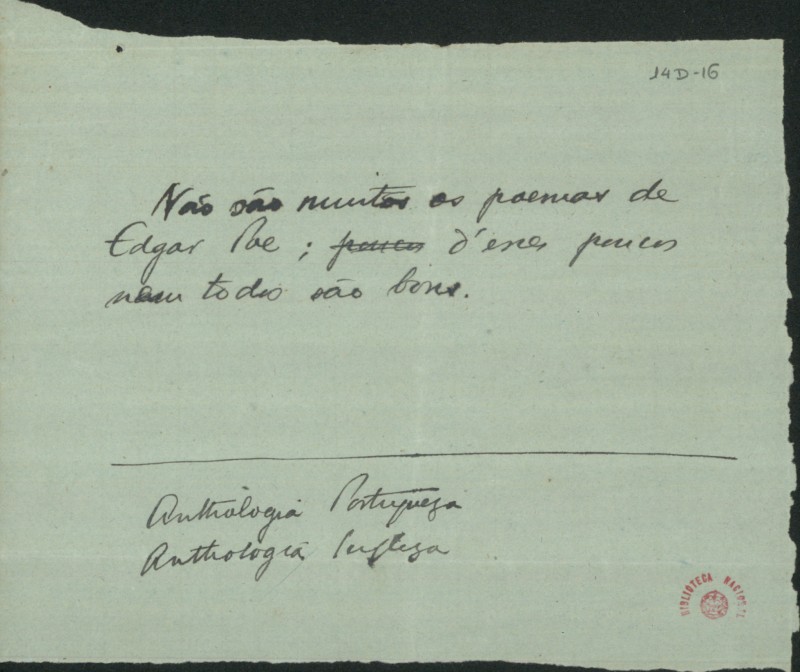 14D-16
Não são muitos os poemas de
Edgar Poe; poucos d'esses poucos
nem todos são bons.
Anthologia Portugueza
Anthologia Ingleza
BIBLIOTECA NACIONAL